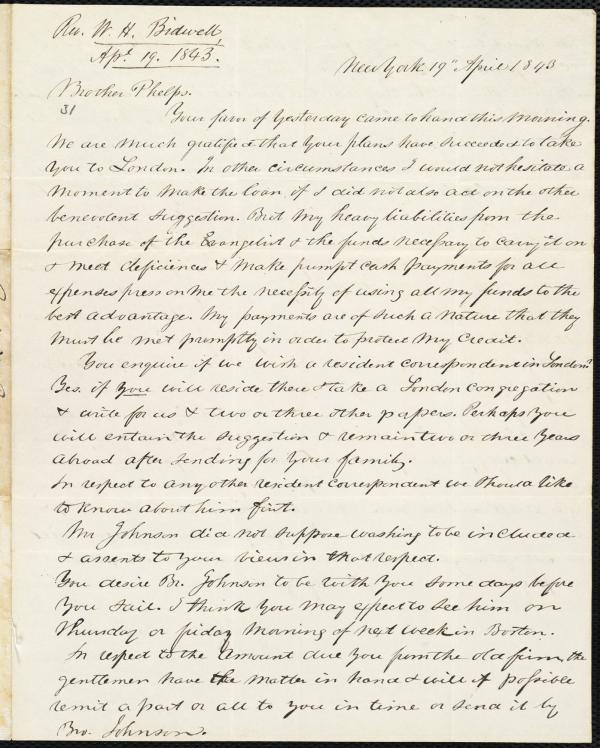 Rev. W. H. Bidwell,
Apl. 19. 1843.
New York 19" April 1843
Brother Phelps.
31
Your favor of yesterday came to hand this morning.
We are much gratified that your plans have succeeded to take
you to London. In other circumstances I would not hesitate a
moment to make the loan if I did not also act on the other
benevolent suggestion. But my heavy liabilities from the
purchase of the Evangelist & the funds necessary to carry it on
& meet deficiences & make prompt cash payments for all
expenses press on me the necessity of using all my funds to the
best advantage. My payments are of such a nature that they
must be met promptly in order to protect my credit.
You enquire if we wish a resident correspondent in London?
Yes. if you will reside there & take a London congregation
& write for us & two or three other papers. Perhaps you
will entertain the suggestion & remain two or three years
abroad after sending for your family.
In respect to any other resident correspondent we should like
to know about him first.
Mr Johnson did not suppose washing to be included
& assents to your views in that respect.
You desire Br. Johnson to be with you some days before
you sail. I think you may expect to see him on
Thursday or friday morning of next week in Boston.
In respect to the amount due you from the old firm, the
gentlemen have the matter in hand & will if possible
remit a part or all to you in time or send it by
Bro. Johnson.